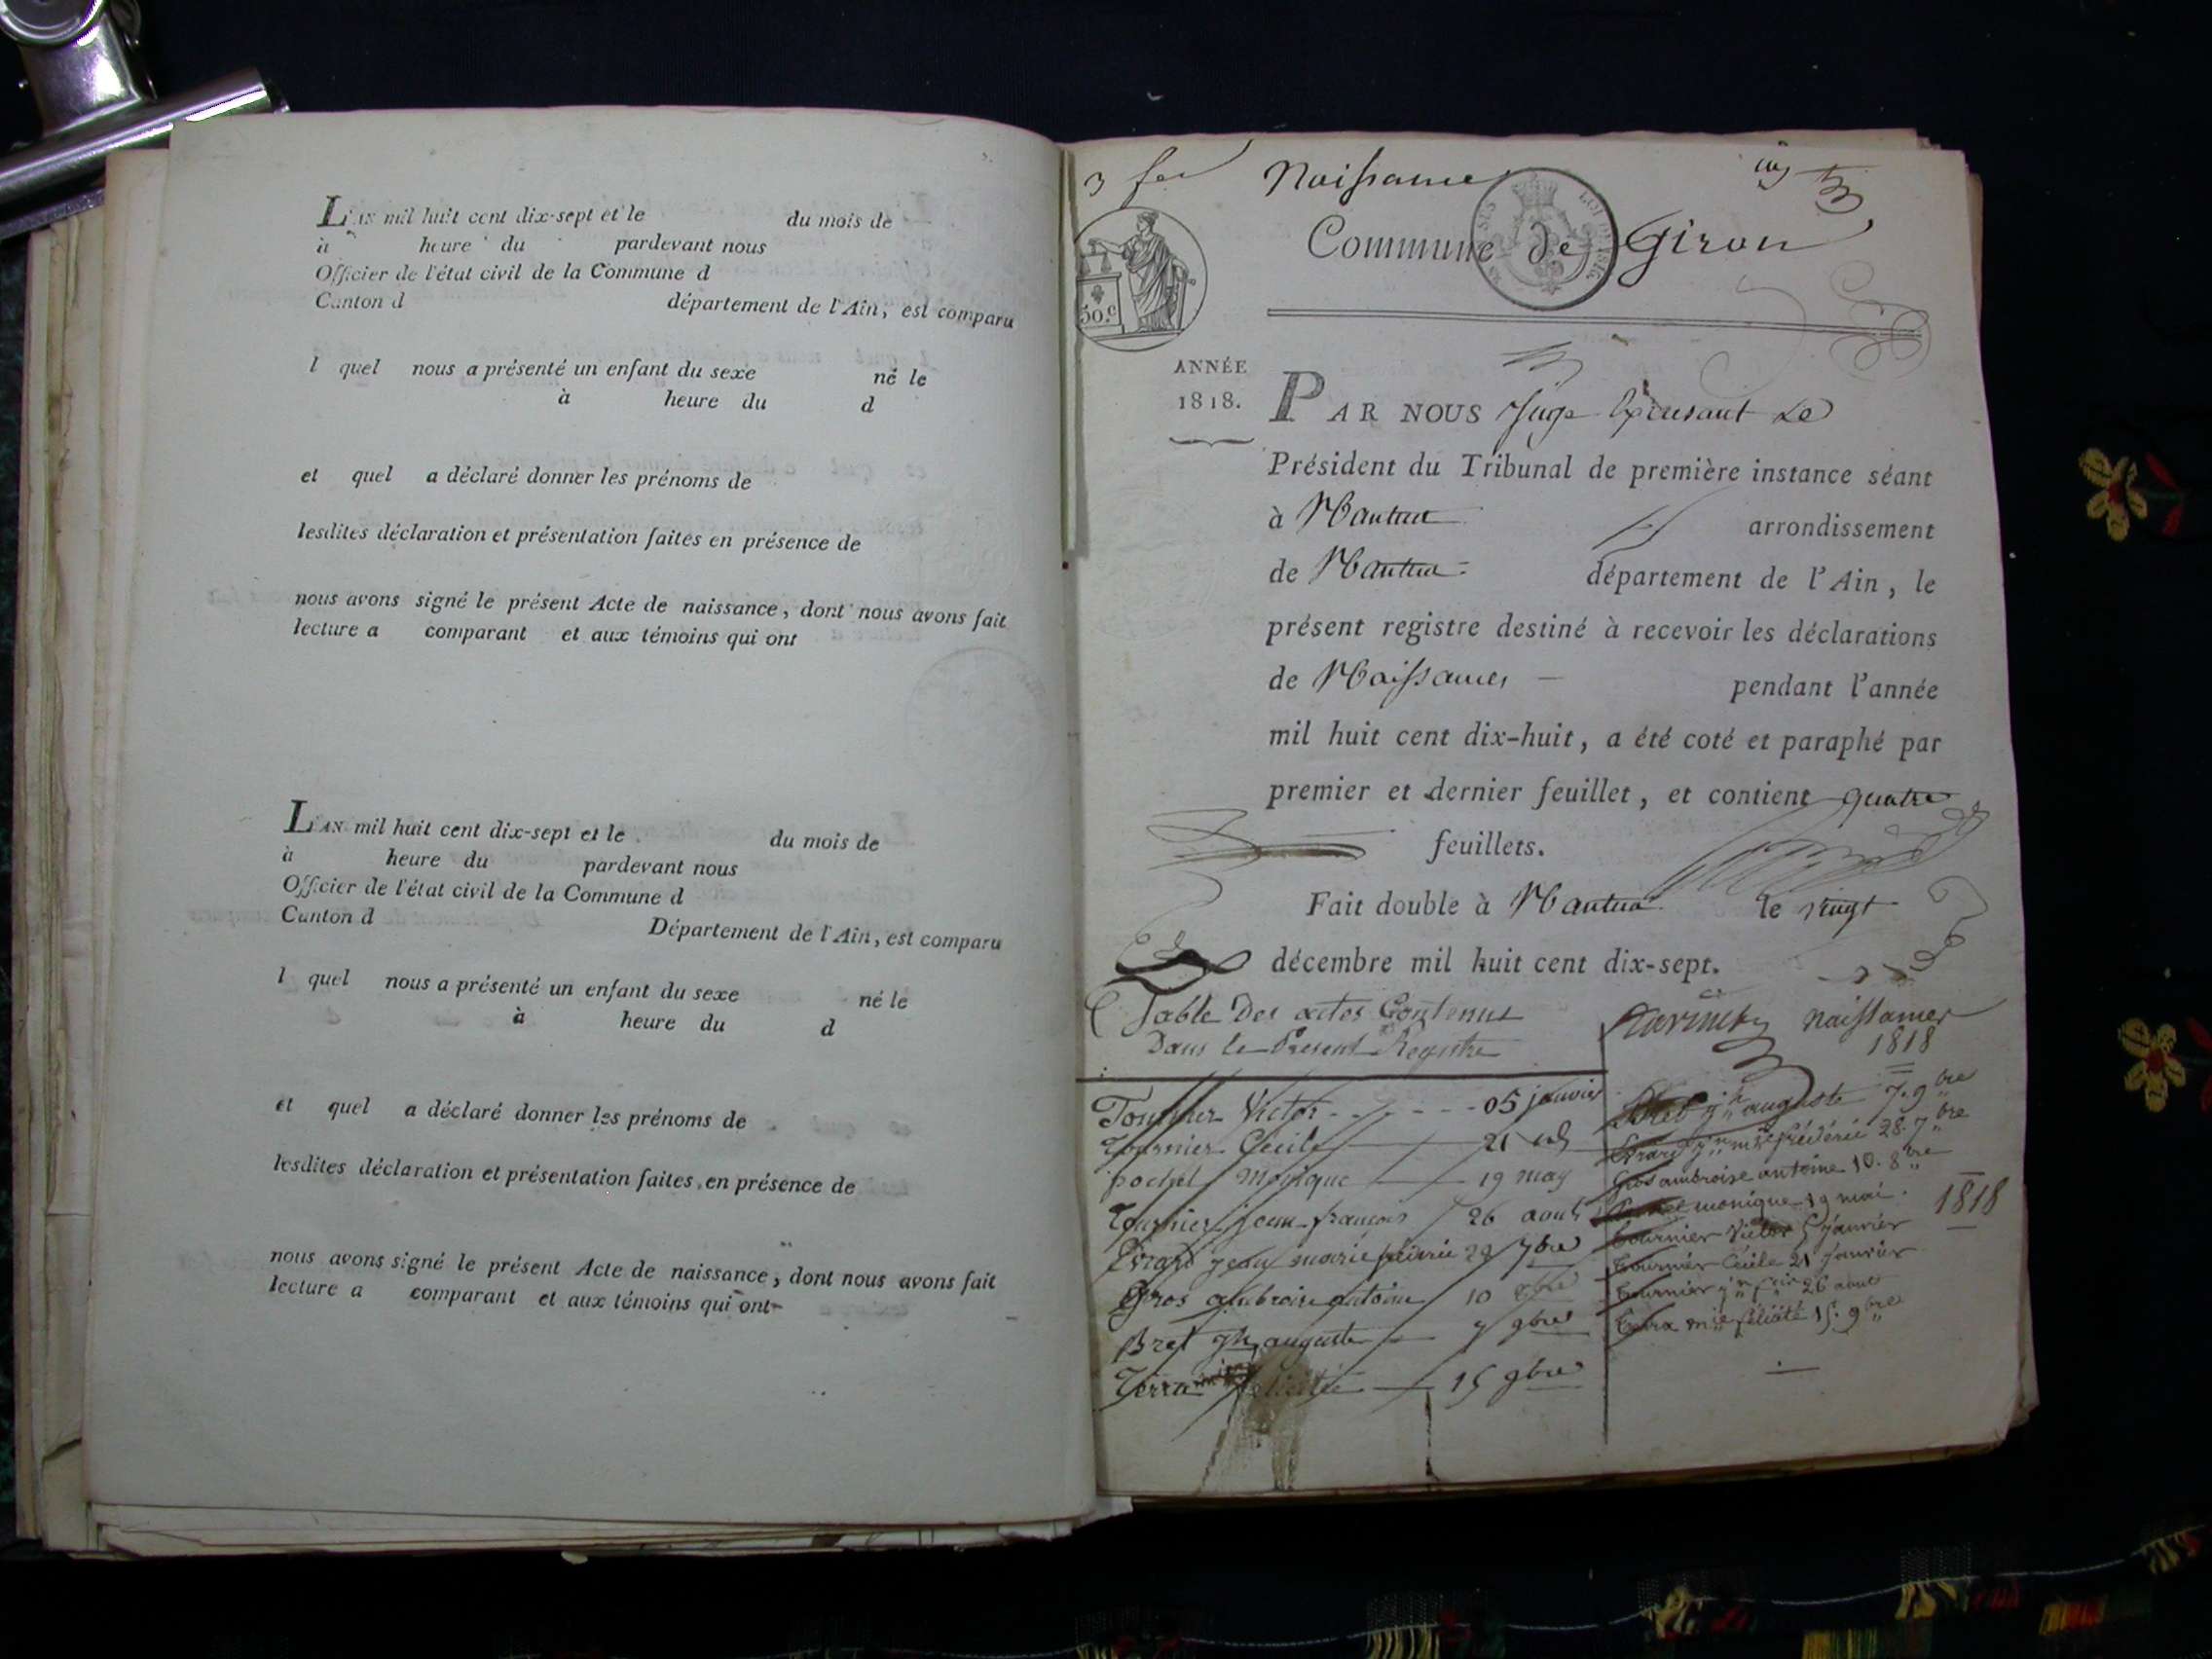 L'AN mil huit cent dix-sept et le du mois de
à heure du pardevant nous
Officier de l'état civil de la Commune d
Canton d département de l'Ain, est comparu
l quel nous a présenté un enfant du sexe né le
à heure du d
et quel a déclaré donner les prénoms de
lesdites déclaration et présentation faites en présence de
nous avons signé le présent Acte de naissance, dont nous avons fait
lecture a comparant et aux témoins qui ont
L'AN mil huit cent dix-sept et le du mois de
à heure du pardevant nous
Officier de l'état civil de la Commune d
Canton d Département de l'Ain, est comparu
l quel nous a présenté un enfant du sexe né le
à heure du d
et quel a déclaré donner les prénoms de
lesdites déclaration et présentation faites en présence de
nous avons signé le présent Acte de naissance, dont nous avons fait
lecture a comparant et aux témoins qui ont
3 Naissances
Commune de Giron
50.c
ANNÉE
1818.
PAR NOUS Juge Exerçant Le
Président du Tribunal de première instance séant
à Nantua arrondissement
de Nantua département de l'Ain, le
présent registre destiné à recevoir les déclarations
de Naissances pendant l'année
mil huit cent dix-huit, a été coté et paraphé par
premier et dernier feuillet, et contient quatre
feuillets.
Fait double à Nantua le vingt
décembre mil huit cent dix-sept.
Table Des actes Contenus
Dans le Present Registre
Tournier Victor - - - - - 05 janvier
Tournier Cecile 21
pochet Monique 19 may
Tournier jean françois 26 aout
Evrard jean marie 28 7bre
Gros ambroise antoine 10 8bre
Bret jh auguste 7 9bre
Terra félicité 15 9bre
naissances
1818
Bret jh auguste 7. 9bre
Evrard jn mie 28. 7bre
Gros ambroise antoine 10. 8bre
monique 19 mai.
1818
tournier Victor 5 janvier
tournier Cécile 21 janvier
tournier jn fois 26 aout
terra mie félicité 15. 9bre